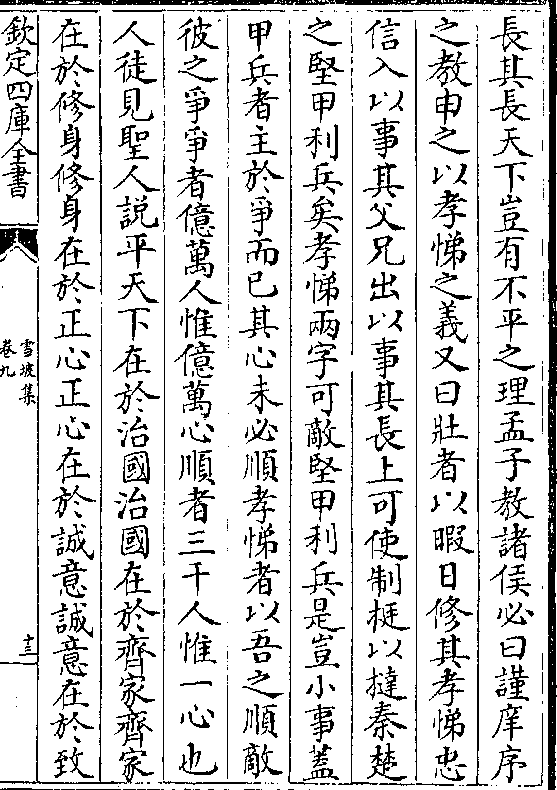 長其長天下豈有不平之理孟子教諸侯必曰謹庠序
之教申之以孝悌之義又曰壯者以暇日修其孝悌忠
信入以事其父兄出以事其長上可使制梃以撻秦楚
之堅甲利兵矣孝悌兩字可敵堅甲利兵是豈小事蓋
甲兵者主於爭而已其心未必順孝悌者以吾之順敵
彼之爭爭者億萬人惟億萬心順者三千人惟一心也
人徒見聖人説平天下在於治國治國在於齊家齊家
在於修身修身在於正心正心在於誠意誠意在於致
欽定四庫全書
雪坡集
卷九
十三